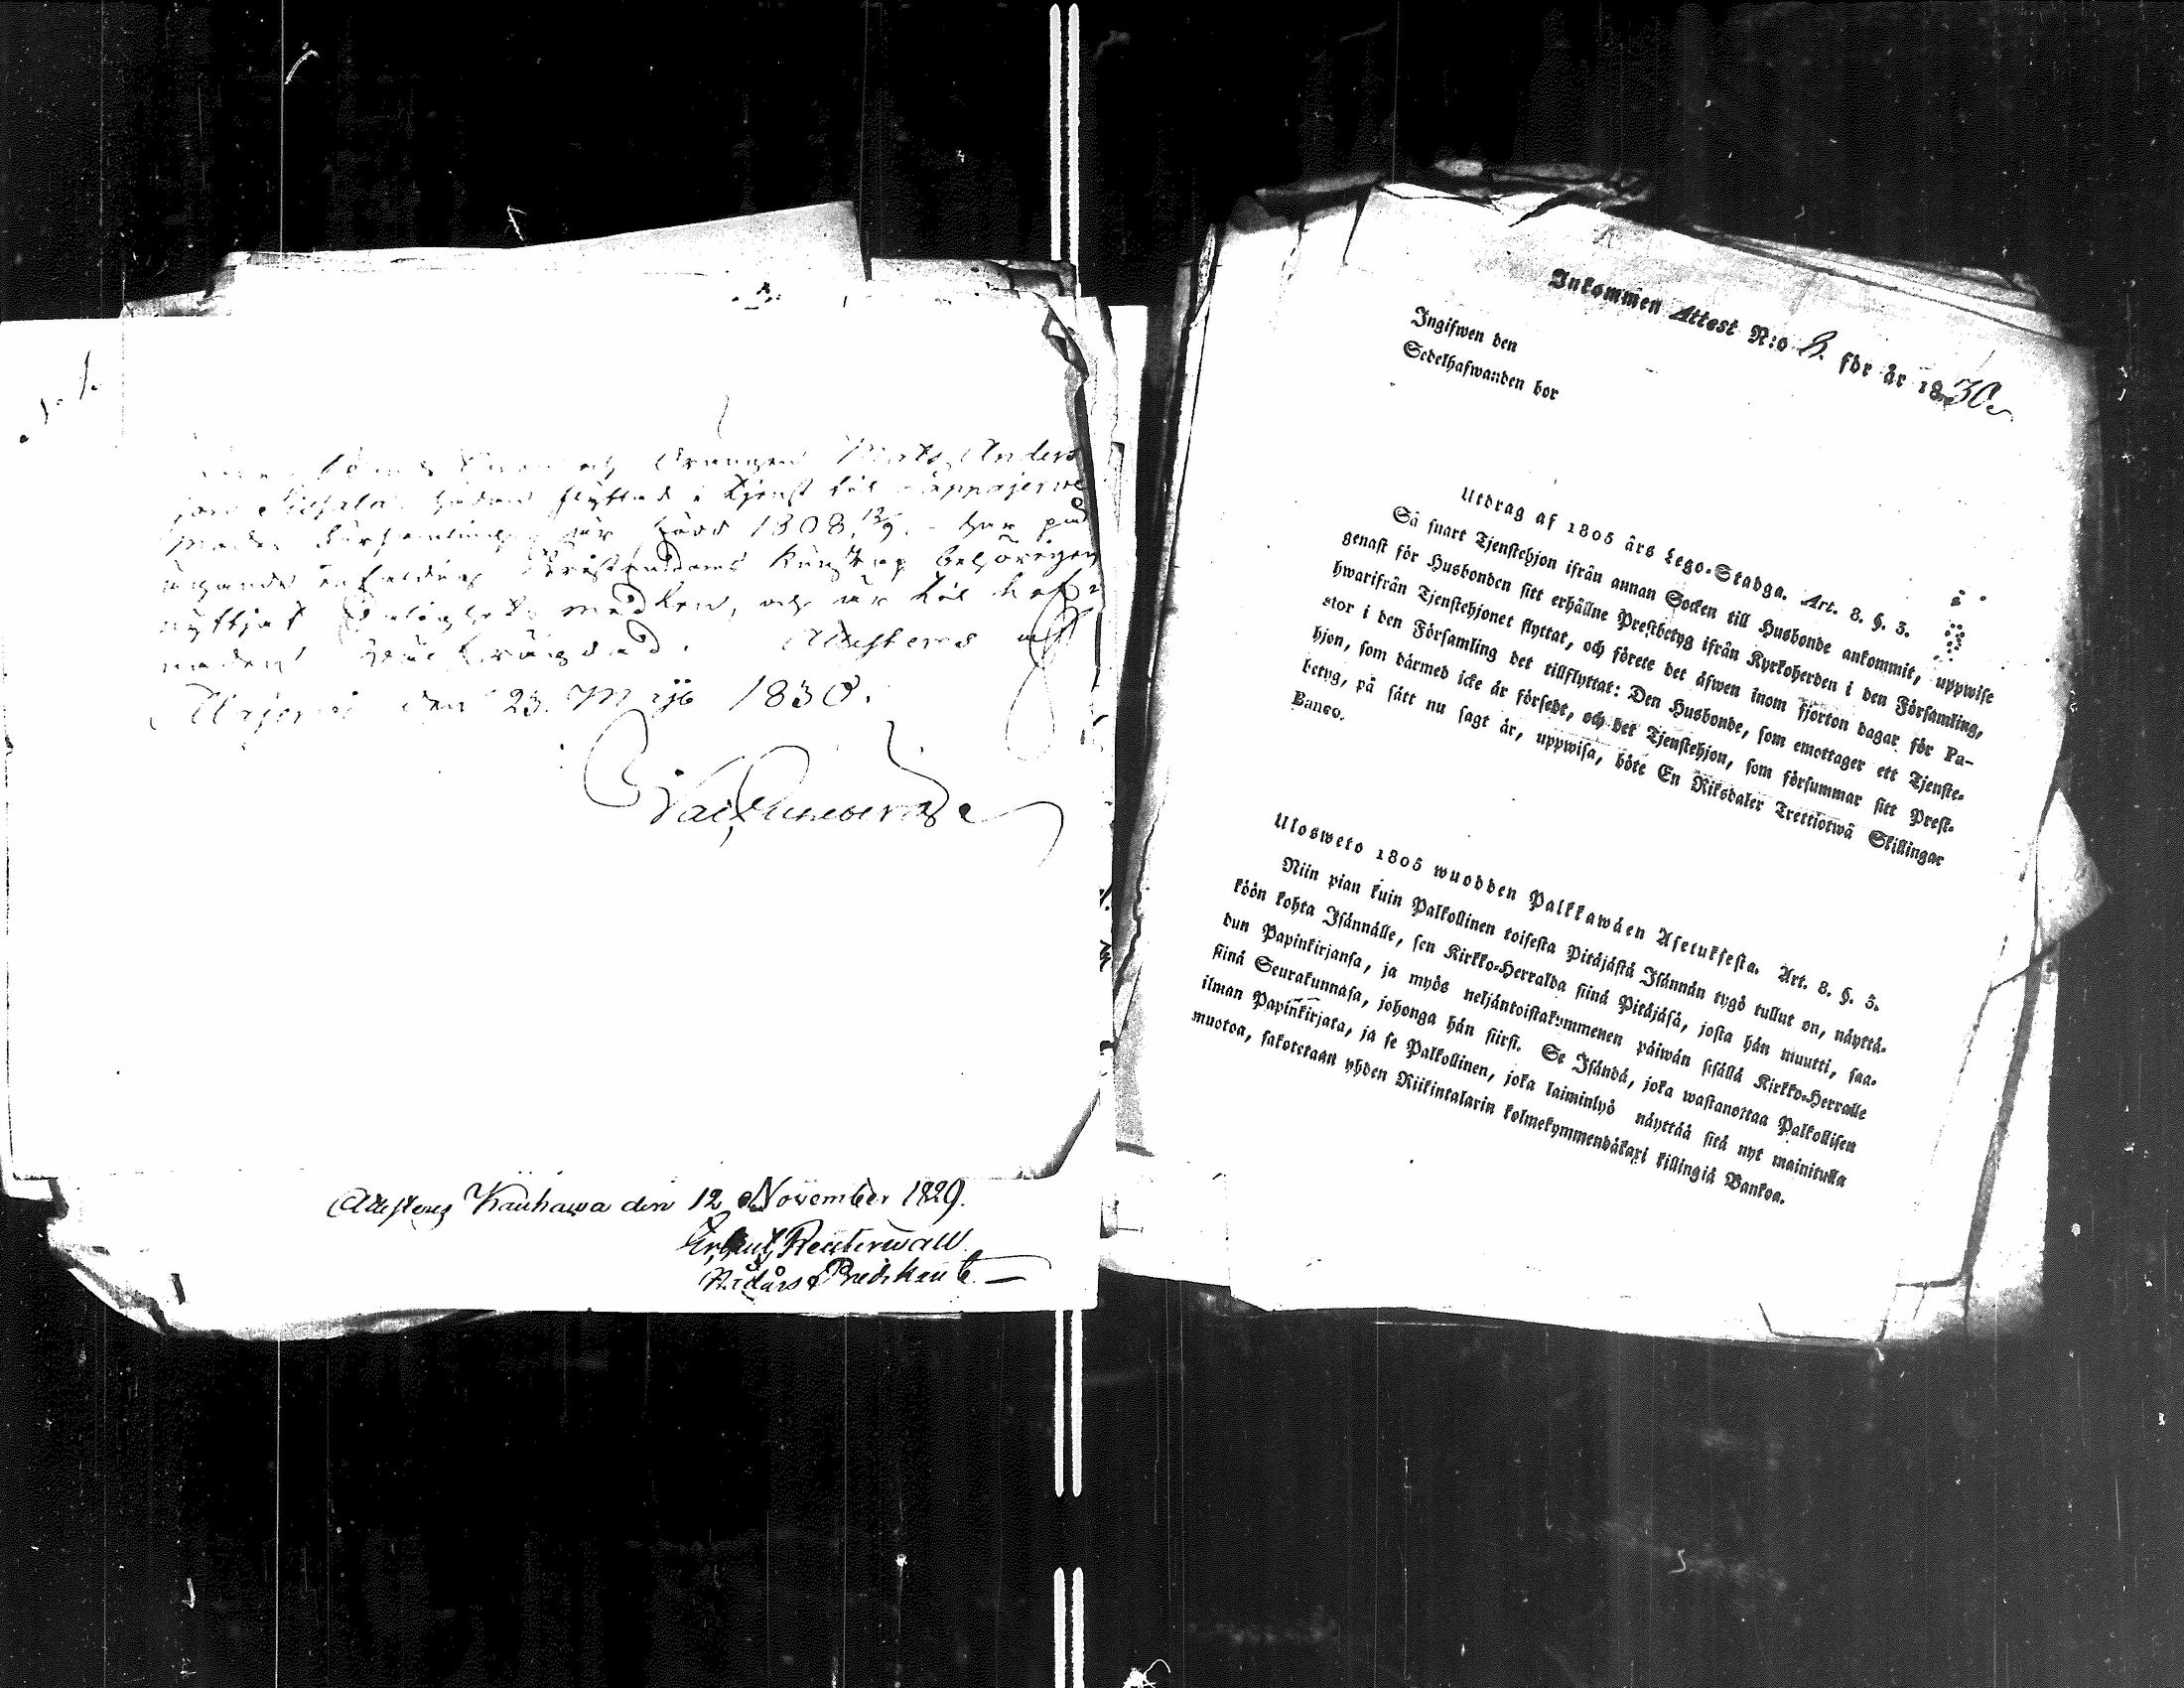 och Drängen Mats Anders
son hädan flyttad i tjenst till Lappajerwi
Moder Församling, är född 1808 12/9. har
ägande Christendoms Kunskap behörigen
nyttjat Salighets medlen, och är till
naden Attesteras af
den 23. Maji 1830.
Attesteras Kauhawa den 12 November 1829.
Reuterwall
Nådårs Predikant
Inkommen Attest N:o 3. för år 1830
Ingifwen den
Sedelhafwanden bor
Utdrag af 1805 års Lego-Stadga. Art. 8. §. 5.
Så snart Tjenstehjon ifrån annan Socken till Husbonde ankommit, uppwise
genast för Husbonden sitt erhållne Prestbetyg ifrån Kyrkoherden i den Församling,
hwarifrån Tjenstehjonet flyttat, och förete det äfwen inom fjorton dagar för Pa-
stor i den Församling det tillflyttat: Den Husbonde, som emottager ett Tjenste-
hjon, som dårmed icke är försedt, och det Tjenstehjon, som försummar sitt Prest-
betyg, på sätt nu sagt är, uppwisa, böte En Riksdaler Trettiotwå Skillingar
Banco.
Ulosweto 1805 wuodden Palkkawäen Asetuksesta. Art. 8. §. 5.
Niin pian kuin Palkollinen toisesta Pitäjästä Isännän tygö tullut on, näyttä-
köön kohta Isännälle, sen Kirkko-Herralda siinä Pitäjäsä, josta hän muutti, saa-
dun Papinkirjansa, ja myös neljäntoistakymmenen päiwän sisällä Kirkko-Herralle
siinä Seurakunnasa, johonga hän siirsi. Se Isändä, joka wastanottaa Palkollisen
ilman Papinkirjata, ja se Palkollinen, joka laiminlyö näyttää sitä nyt mainitulla
muotoa, sakotetaan yhden Riikintalarin kolmekymmendäkaxi killingiä Bankoa.